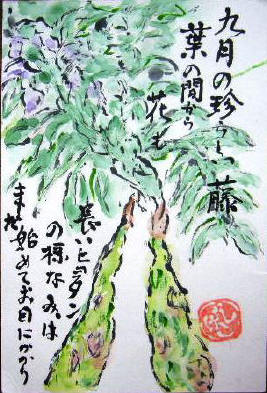 九月の珍らしい藤
葉の間から
花も
長いヒョウタン
の様なみは
また始めてお目にかかり